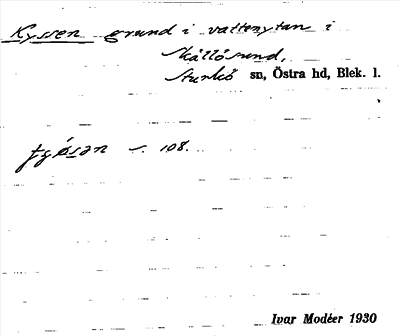 Kyssen grund i vattenytan i
Skållösund,
Sturkö sn, Östra hd, Blek. l.
s. 108.
Ivar Modéer 1930